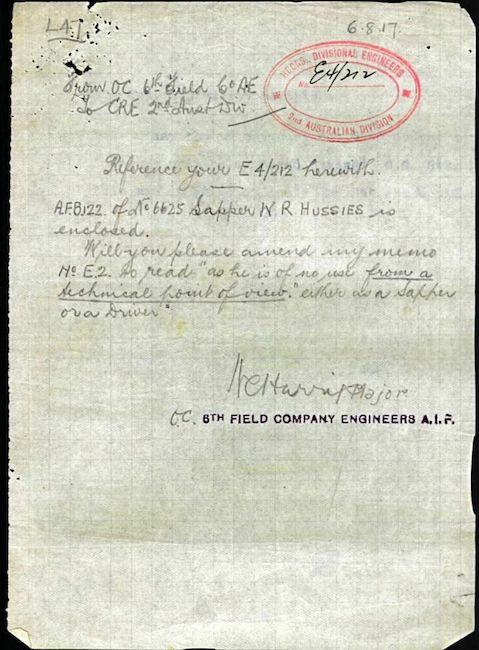 L4.1
6.8.17.
HDQRS. DIVISIONAL ENGINEERS
No. E4/212
2ND AUSTRALIAN DIVISION
From OC 6th Field Co AE
To CRE 2nd Aust Div
Reference your E4/212 herewith.
A.F.B.122 of No 6625 Sapper W. R. HUSSIES is
enclosed.
Will you please amend my memo
No. E.2. to read "as he is of no use from a
technical point of view." either as a Sapper
or a Driver"
Major
O.C. 6TH FIELD COMPANY ENGINEERS A.I.F.